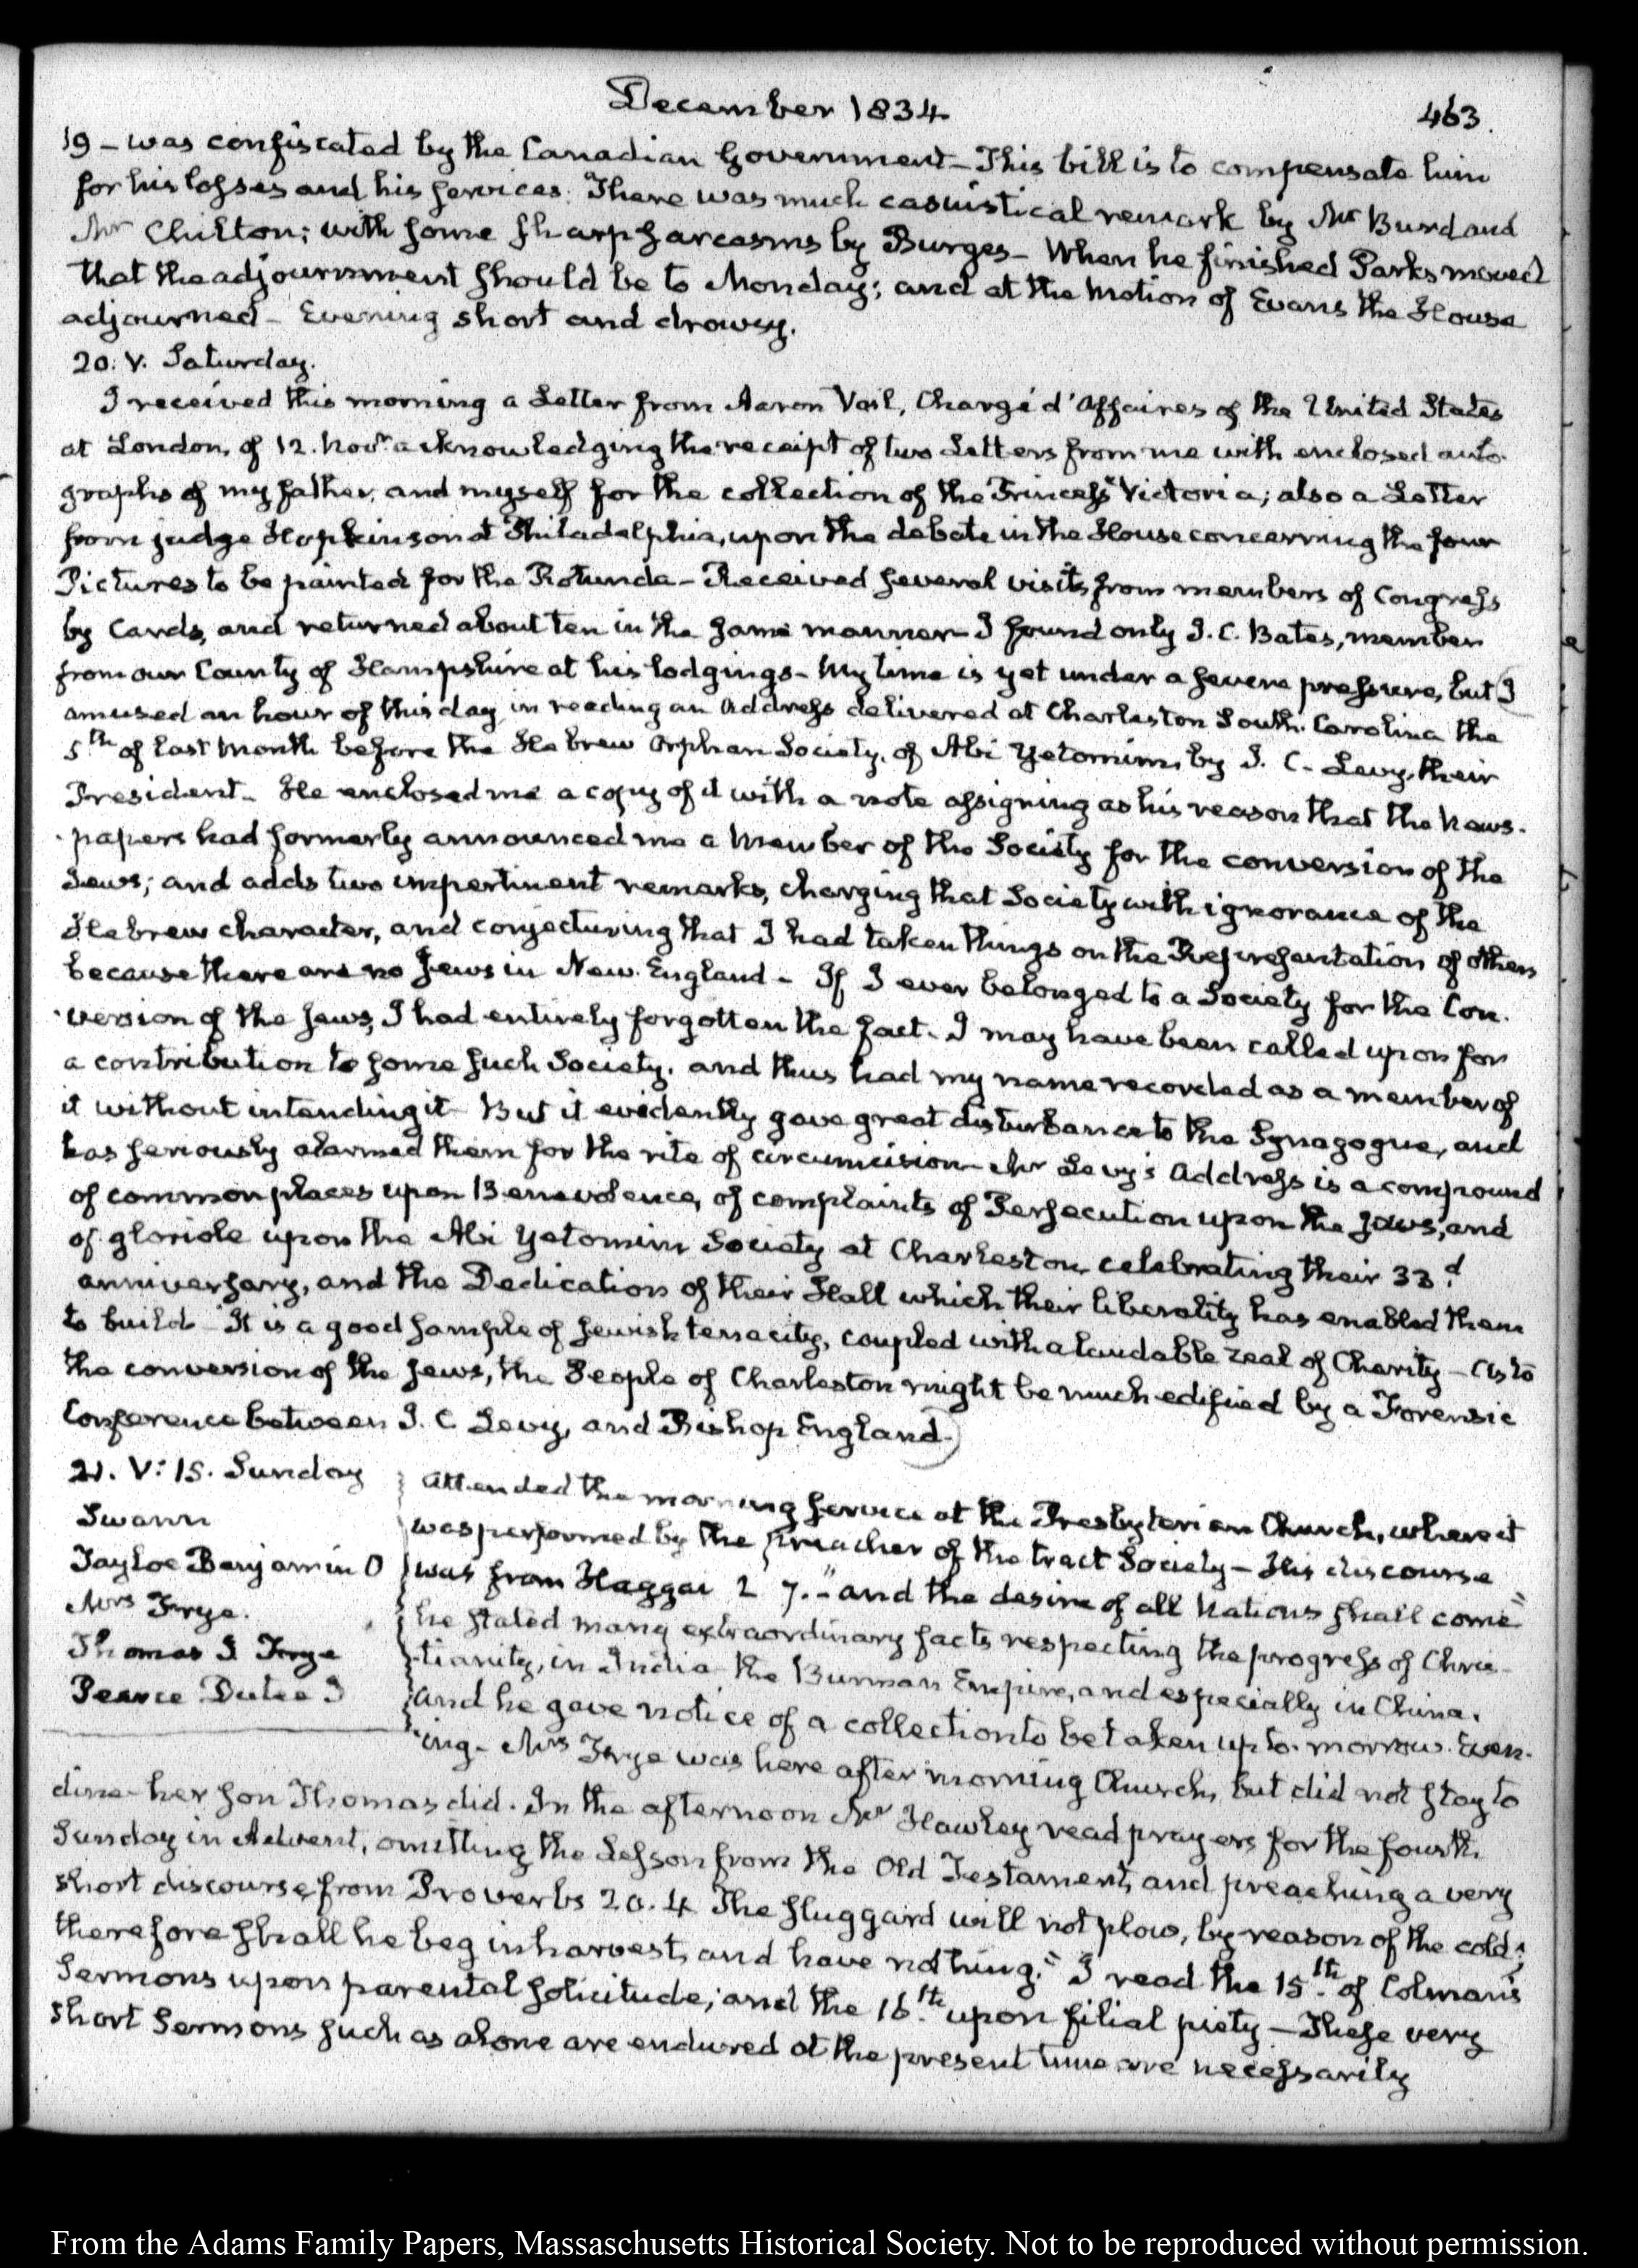 December 1834
463.
19 – was confiscated by the Canadian Government – This bill is to compensate him
for his losses and his services. There was much casuistical remark by Mr Burd and
Mr Chilton; with some sharp sarcasms by Burges – When he finished Parks moved
that the adjournment should be to Monday; and at the motion of Evans the House
adjourned – Evening short and drowsy.
20. V. Saturday.
I received this morning a Letter from Aaron Vail, Chargé d'Affaires of the United States
at London, of 12. Novr. acknowledging the receipt of two Letters from me with enclosed auto-
graphs of my father, and myself for the collection of the Princess Victoria; also a Letter
from judge Hopkinson at Philadelphia, upon the debate in the House concerning the four
Pictures to be painted for the Rotunda – Received several visits from members of Congress
by Cards, and returned about ten in the same manner – I found only I. C. Bates, member
from our County of Hampshire at his lodgings – My time is yet under a severe pressure, but I
amused an hour of this day in reading an Address delivered at Charleston South Carolina the
5th of last Month before the Hebrew Orphan Society, of Abi Yetomim, by J. C. Levy, their
President – He enclosed me a copy of it with a note assigning as his reason that the News-
papers had formerly announced me a Member of the Society for the conversion of the
Jews; and adds two impertinent remarks, charging that Society with ignorance of the
Hebrew character, and conjecturing that I had taken things on the Representation of others
because there are no Jews in New-England – If I ever belonged to a Society for the Con-
version of the Jews, I had entirely forgotten the fact. I may have been called upon for
a contribution to some such Society, and thus had my name recorded as a member of
it without intending it – But it evidently gave great disturbance to the Synagogue, and
has seriously alarmed them for the rite of circumcision – Mr Levy's Address is a compound
of common places upon Benevolence, of complaints of Persecution upon the Jews, and
of gloriole upon the Abi Yetomim Society at Charleston, celebrating their 33d.
anniversary, and the Dedication of their Hall which their liberality has enabled them
to build – It is a good sample of Jewish tenacity, coupled with a laudable zeal of Charity – As to
the conversion of the Jews, the People of Charleston might be much edified by a Forensic
Conference between J. C Levy, and Bishop England.
21. V: 15. Sunday
Swann
Tayloe Benjamin O
Mrs Frye.
Thomas I Frye
Pearce Dutee I
Attended the morning service at the Presbyterian Church, where it
was performed by the Preacher of the tract Society – His discourse
was from Haggai 2 7. "and the desire of all Nations shall come"
he stated many extraordinary facts respecting the progress of Chris-
tianity, in India the Burman Empire, and especially in China.
and he gave notice of a collection to be taken up to-morrow Even-
ing – Mrs Frye was here after morning Church, but did not stay to
dine – her son Thomas did. In the afternoon Mr Hawley read prayers for the fourth
Sunday in Advent, omitting the Lesson from the Old Testament, and preaching a very
short discourse from Proverbs 20. 4 The sluggard will not plow, by reason of the cold;
therefore shall he beg in harvest, and have nothing." I read the 15th. of Colman's
Sermons upon parental solicitude; and the 16th. upon filial piety – These very
short Sermons such as alone are endured at the present time are necessarily
From the Adams Family Papers, Massachusetts Historical Society. Not to be reproduced without permission.